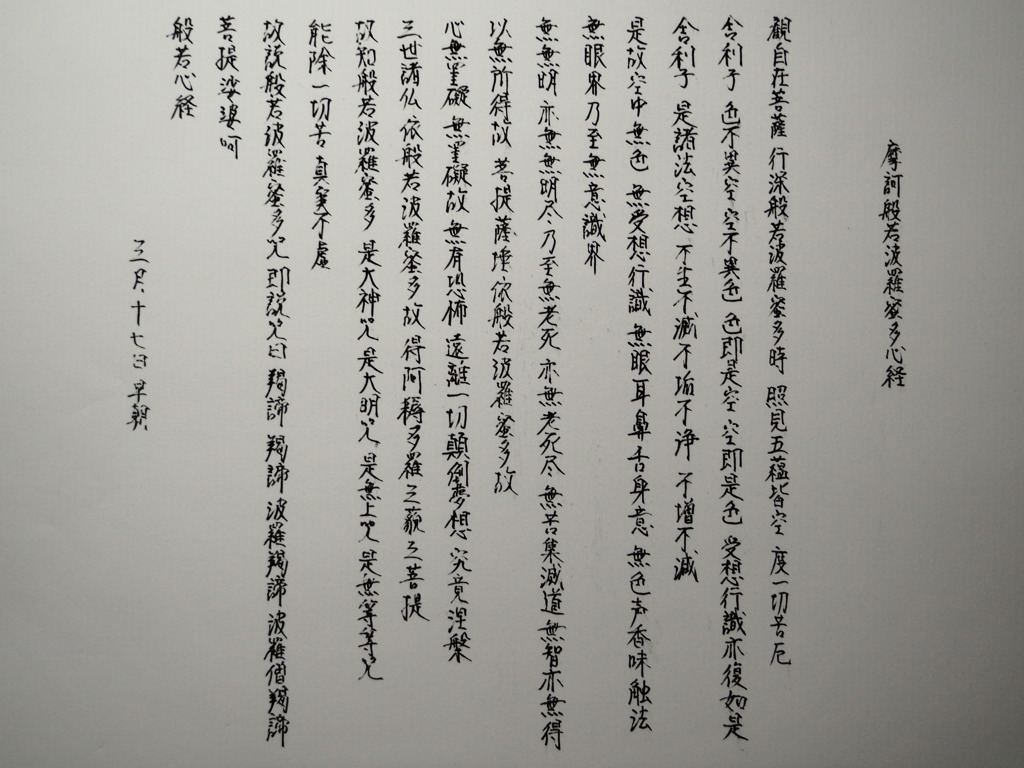 摩訶般若波羅蜜多心経
観自在菩薩 行深般若波羅蜜多時 照見五蘊皆空 度一切苦厄
舎利子 色不異空 空不異色 色即是空 空即是色 受想行識亦復如是
舎利子 是諸法空想 不生不滅 不垢不浄 不増不減
是故空中無色 無受想行識 無眼耳鼻舌身意 無色声香味触法
無眼界乃至無意識界
無無明 亦無無明尽 乃至無老死 亦無老死尽 無苦集滅道 無智亦無得
以無所得故 菩提薩埵 依般若波羅蜜多故
心無罣礙 無罣礙故 無有恐怖 遠離一切顛倒夢想 究竟涅槃
三世諸仏 依般若波羅蜜多故 得阿耨多羅三藐三菩提
故知般若波羅蜜多 是大神咒 是大明咒 是無上咒 是無等等咒
能除一切苦 真実不虚
故説般若波羅蜜多咒 即説咒曰 羯諦 羯諦 波羅羯諦 波羅僧羯諦
菩提娑婆呵
般若心経
三月十七日 早朝